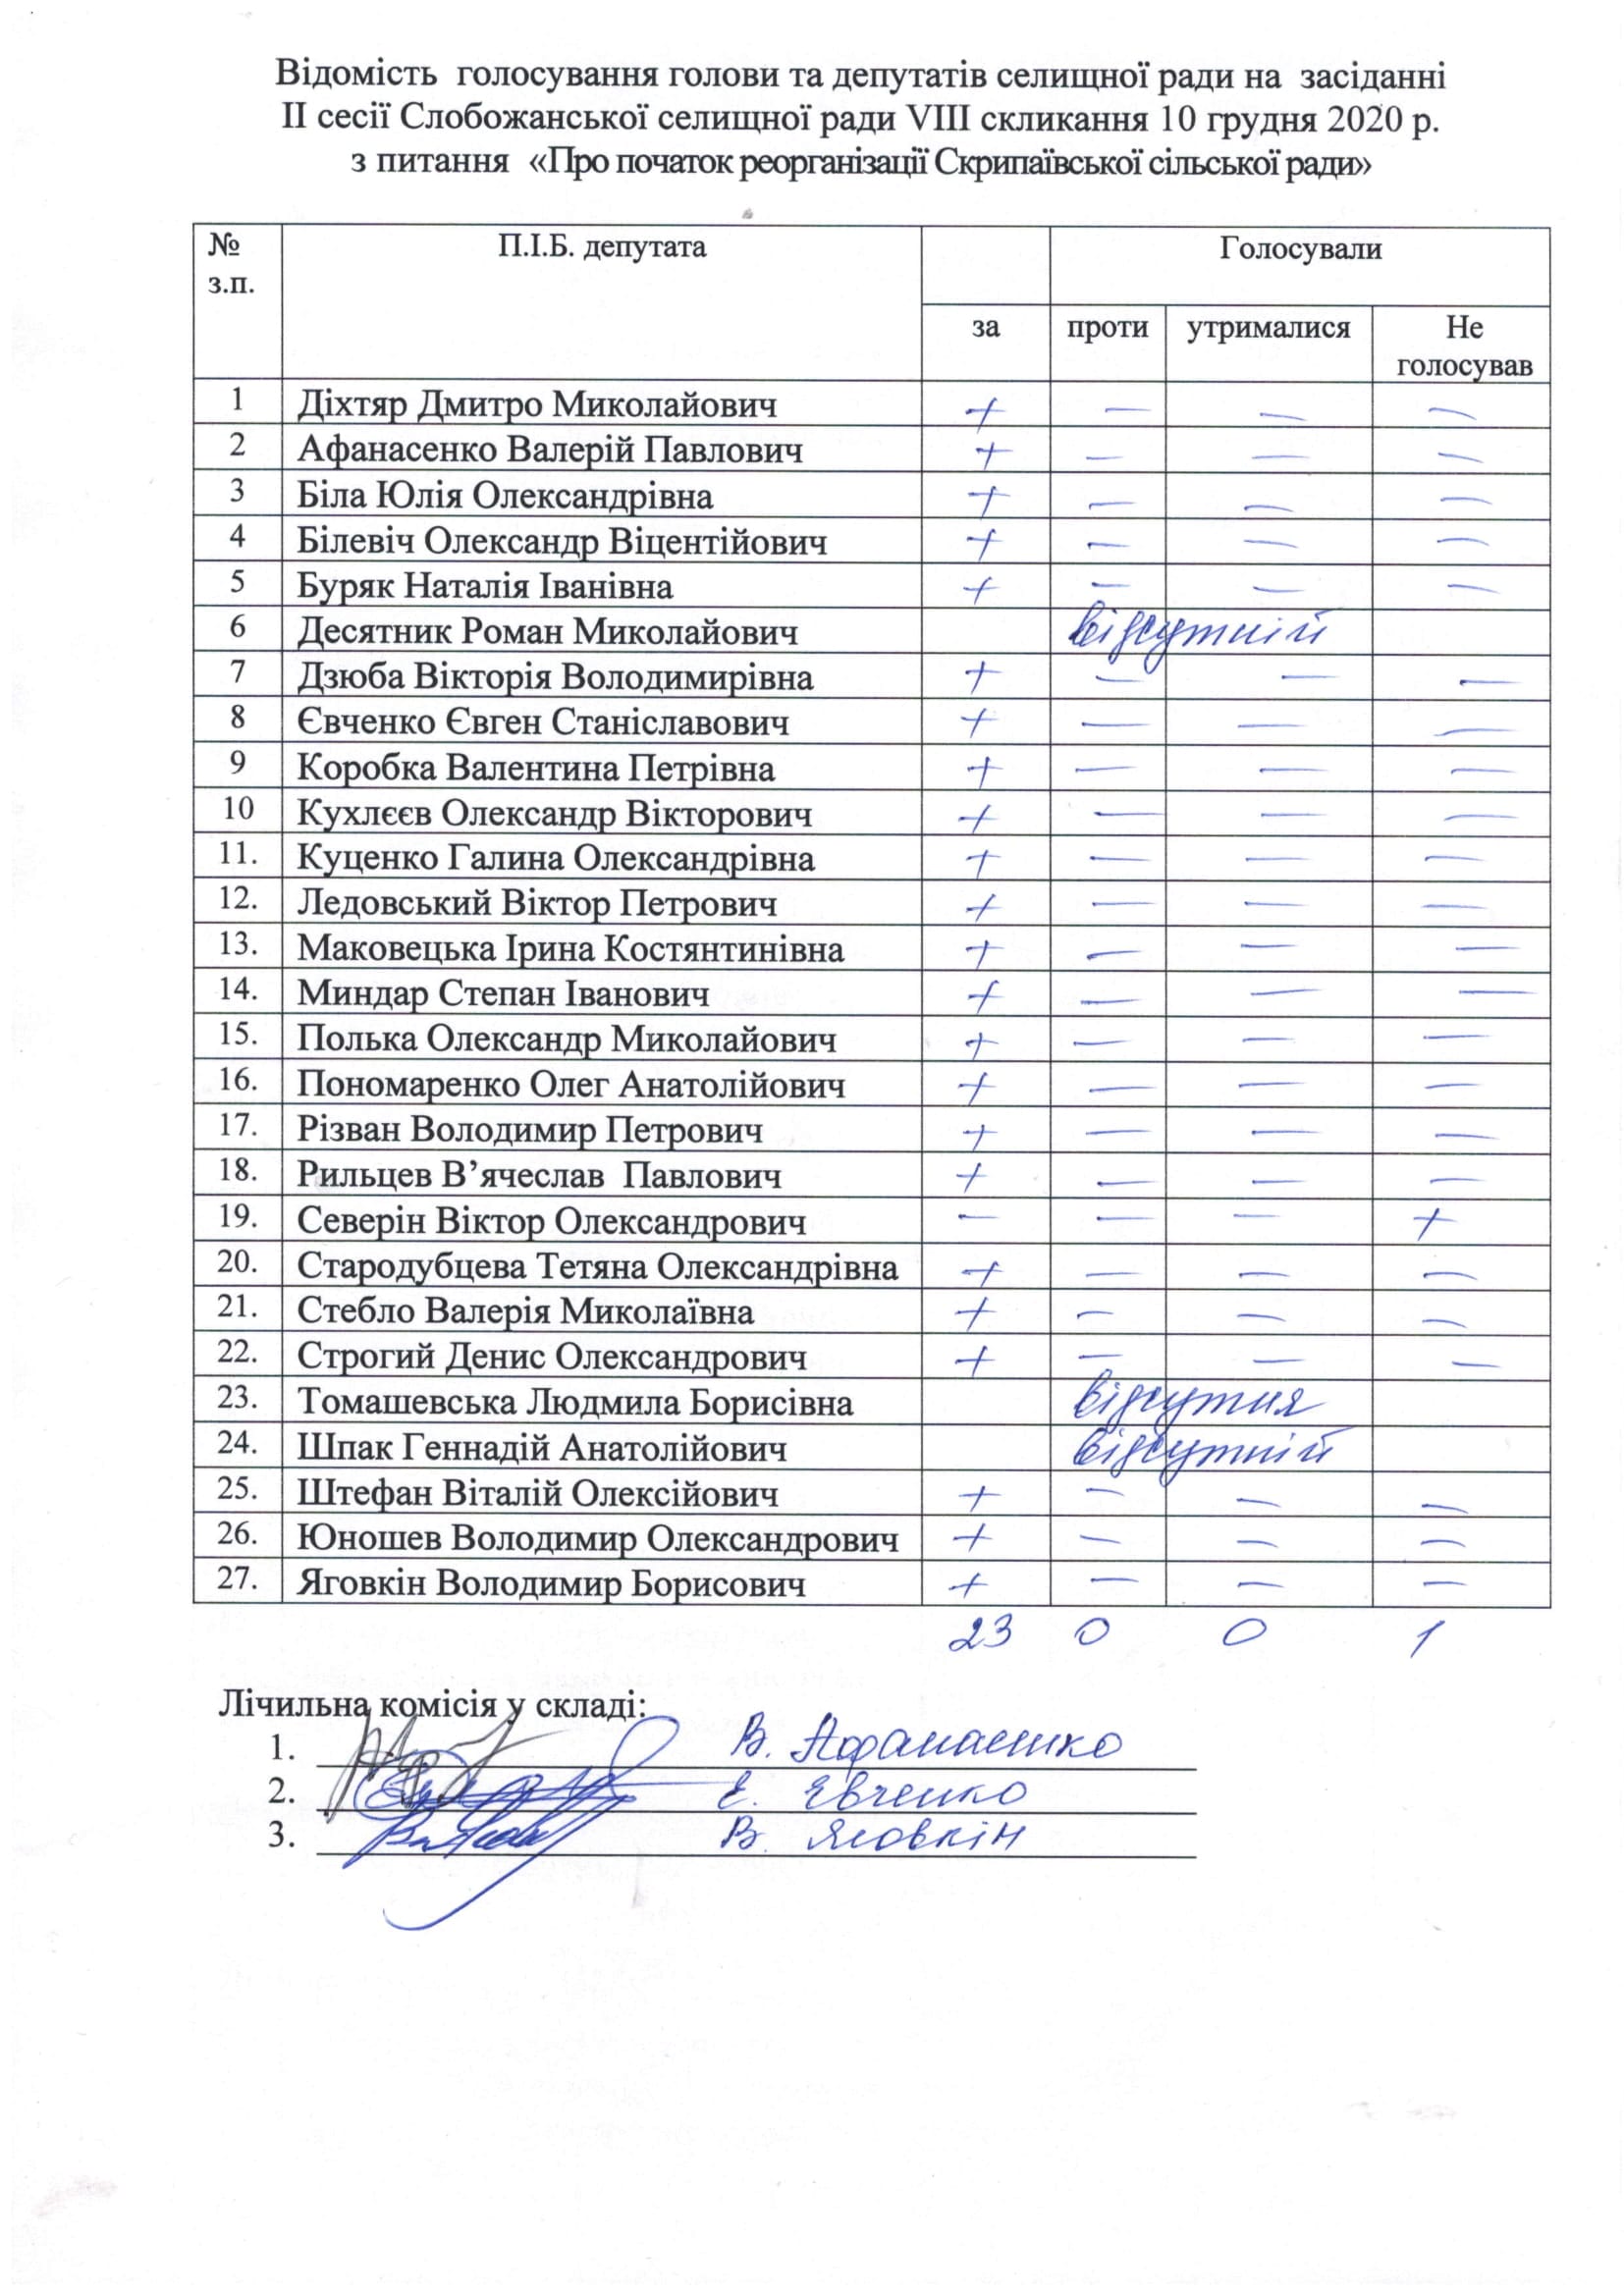 Відомість голосування голови та депутатів селищної ради на засіданні
ІІ сесії Слобожанської селищної ради VIII скликання 10 грудня 2020 р.
з питання «Про початок реорганізації Скрипаївської сільської ради»
№ з.п. П.І.Б. депутата Голосували
за проти утрималися Не голосував
1 Діхтяр Дмитро Миколайович + — — —
2 Афанасенко Валерій Павлович + — — —
3 Біла Юлія Олександрівна + — — —
4 Білевіч Олександр Віцентійович + — — —
5 Буряк Наталія Іванівна + — — —
6 Десятник Роман Миколайович відсутній
7 Дзюба Вікторія Володимирівна + — — —
8 Євченко Євген Станіславович + — — —
9 Коробка Валентина Петрівна + — — —
10 Кухлєєв Олександр Вікторович + — — —
11. Куценко Галина Олександрівна + — — —
12. Ледовський Віктор Петрович + — — —
13. Маковецька Ірина Костянтинівна + — — —
14. Миндар Степан Іванович + — — —
15. Полька Олександр Миколайович + — — —
16. Пономаренко Олег Анатолійович + — — —
17. Різван Володимир Петрович + — — —
18. Рильцев В’ячеслав Павлович + — — —
19. Северін Віктор Олександрович — — — +
20. Стародубцева Тетяна Олександрівна + — — —
21. Стебло Валерія Миколаївна + — — —
22. Строгий Денис Олександрович + — — —
23. Томашевська Людмила Борисівна відсутня
24. Шпак Геннадій Анатолійович відсутній
25. Штефан Віталій Олексійович + — — —
26. Юношев Володимир Олександрович + — — —
27. Яговкін Володимир Борисович + — — —
23 0 0 1
Лічильна комісія у складі:
1. В. Афанасенко
2. Є. Євченко
3. В. Яговкін